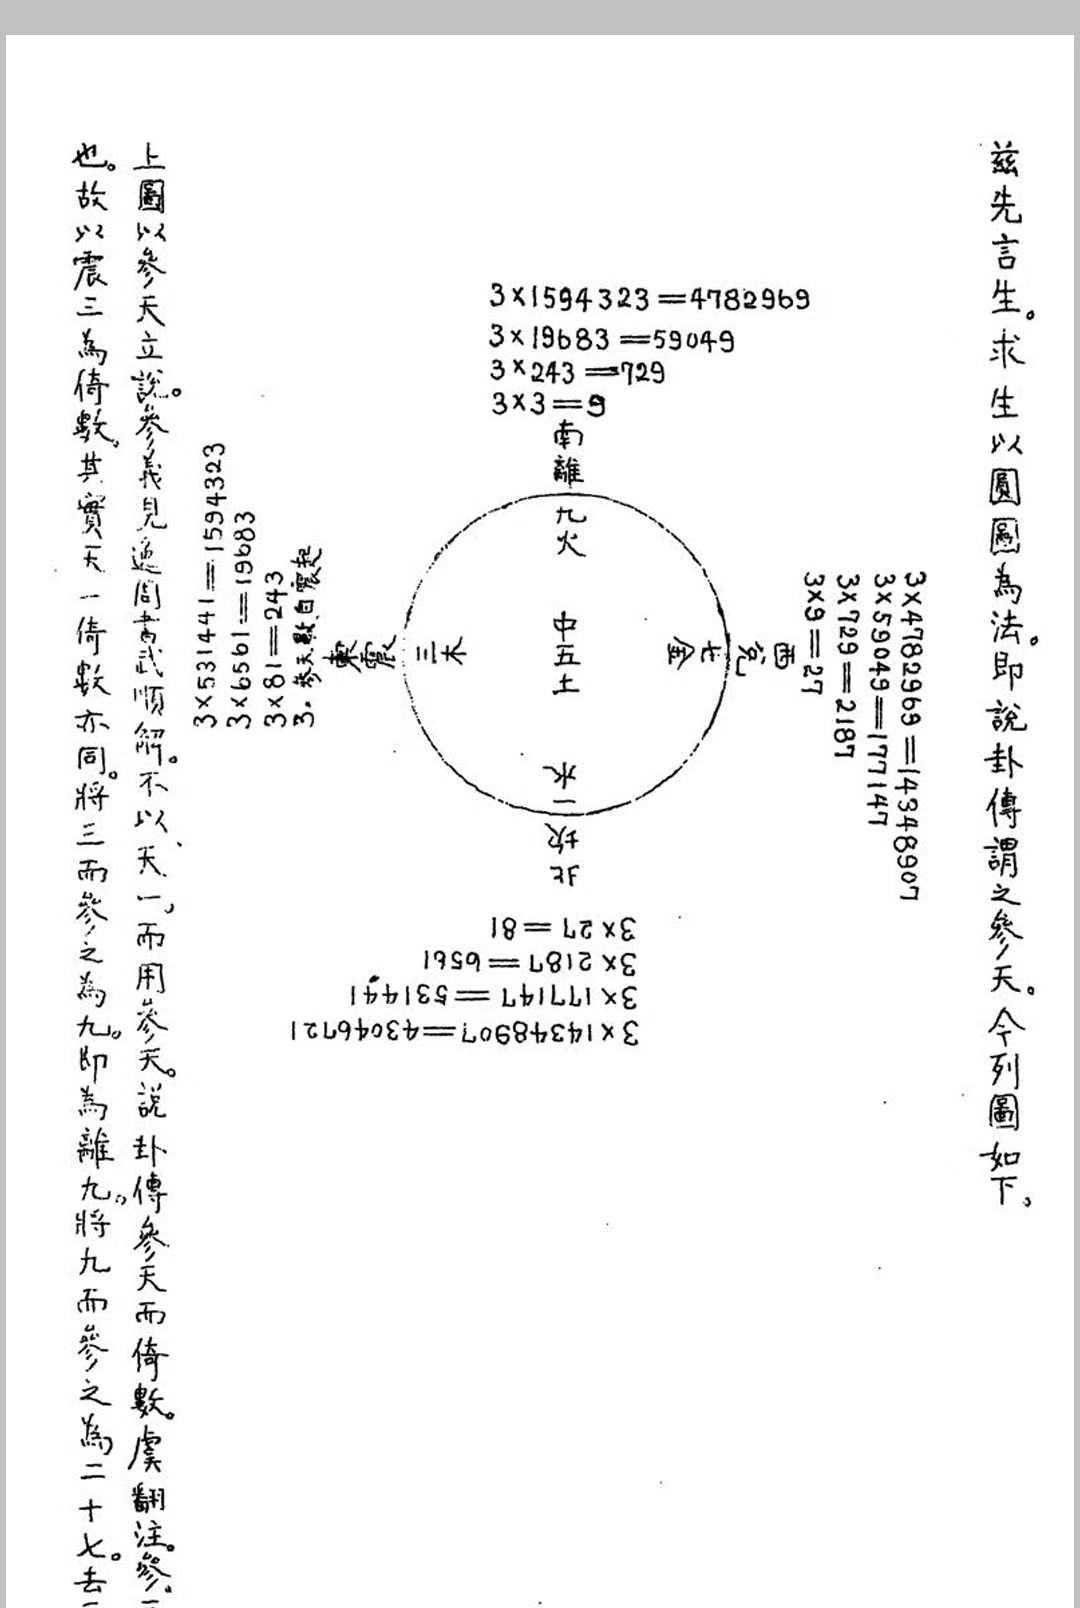 茲先言生。求生以圓圖為法。即說卦傳謂之參天。今列圖如下。
3×1594323=4782969
3×19683=59049
3×243=729
3×3=9
南離
九火
3×4782969=14348907
3×59049=177147
3×729=2187
3×9=27
西兌
七金
中五土
三木
東震
3。參天數自震起
3×81=243
3×6561=19683
3×531441=1594323
一水
北坎
3×27=81
3×2187=6561
3×177147=531441
3×14348907=43046721
上圖以參天立說。參義見逸周書武順解。不以天一,而用參天。說卦傳參天而倚數。虞翻注。參。
也。故以震三為倚數。其實天一倚數亦同。將三而參之為九。即為離九。將九而參之為二十七。去